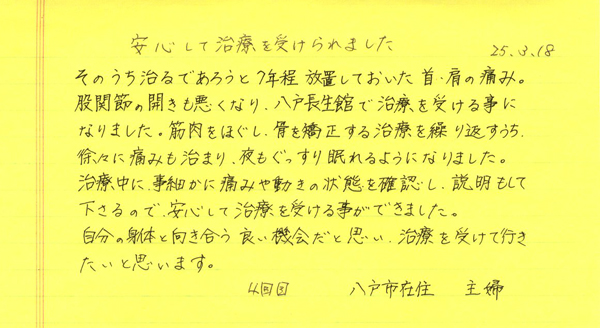 安心して治療を受けられました
25.3.18
そのうち治るであろうと7年程放置しておいた首・肩の痛み。
股関節の開きも悪くなり、八戸長生館で治療を受ける事に
なりました。筋肉をほぐし、骨を矯正する治療を繰り返すうち、
徐々に痛みも治まり、夜もぐっすり眠れるようになりました。
治療中に、事細かに痛みや動きの状態を確認し、説明もして
下さるので、安心して治療を受ける事ができました。
自分の身体と向き合う良い機会だと思い、治療を受けて行き
たいと思います。
4回目 八戸市在住 主婦